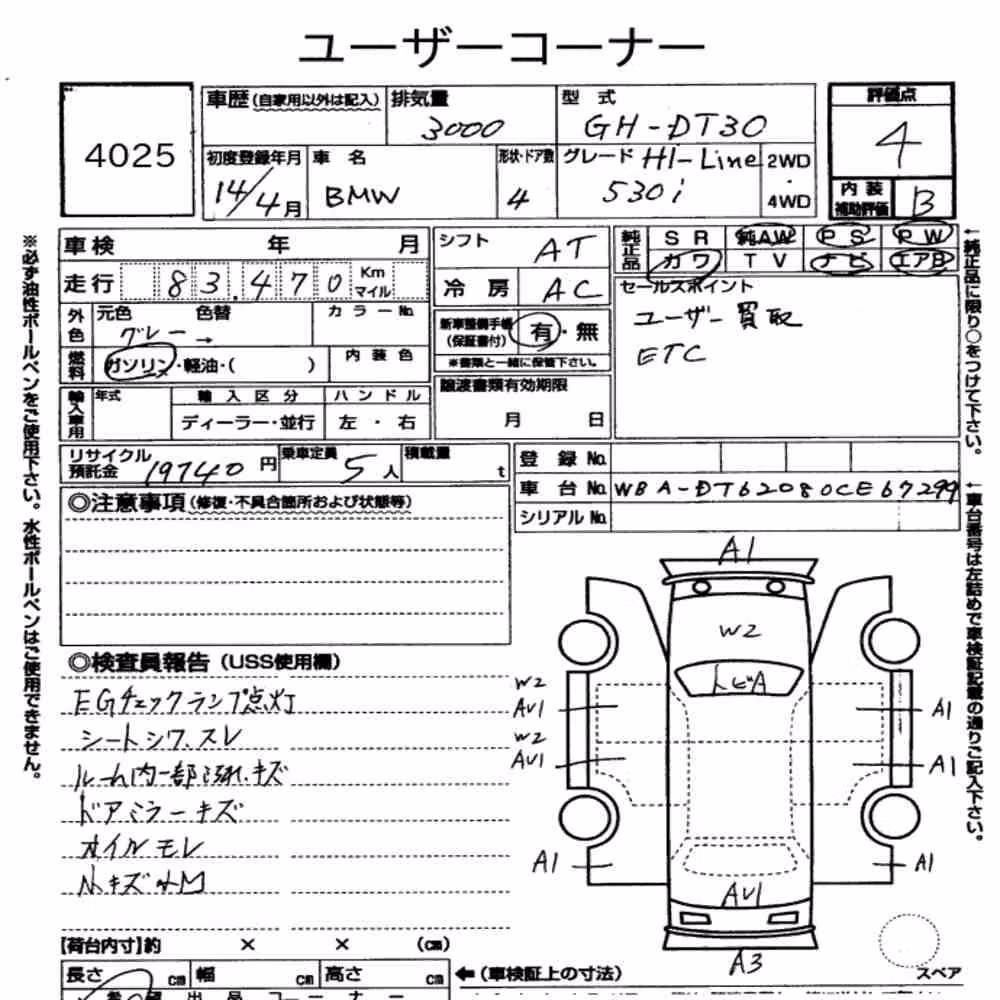 ユーザーコーナー
4025
車歴(自家用以外は記入) 排気量 3000 型式 GH-DT30 評価点 4
初度登録年月 14/4月 車名 BMW 形状・ドア数 4 グレード HI-Line 530i 2WD・4WD 内装補助評価 B
車検 年 月
走行 83,470 Km マイル
シフト AT
冷房 AC
純正品 SR 純AW PS PW
カワ TV ナビ エアB
セールスポイント
ユーザー買取
ETC
外色 元色 グレー → 色替 カラーNo.
燃料 ガソリン・軽油・( ) 内装色
新車整備手帳(保証書付) 有・無
※書類と一緒に保管下さい。
輸入車用 年式 輸入区分 ハンドル
ディーラー・並行 左・右
譲渡書類有効期限
月 日
リサイクル預託金 19740円 乗車定員 5人 積載量 t
登録No.
車台No. WBA-DT62080CE67299
シリアルNo.
◎注意事項(修復・不具合箇所および状態等)
◎検査員報告(USS使用欄)
EGチェックランプ点灯
シートシワ、スレ
ルーム内一部汚れ、キズ
ドアミラーキズ
オイルモレ
小キズ小凹
A1
W2
トビA
W2
AU1
W2
AU1
A1
A1
A1
A1
AU1
A3
スペア
【荷台内寸】約 × × (cm)
長さ cm 幅 cm 高さ cm
←(車検証上の寸法)
※必ず油性ボールペンをご使用下さい。水性ボールペンはご使用できません。
←純正品に限り○をつけて下さい。
←車台番号は左詰めで車検証記載の通りご記入下さい。